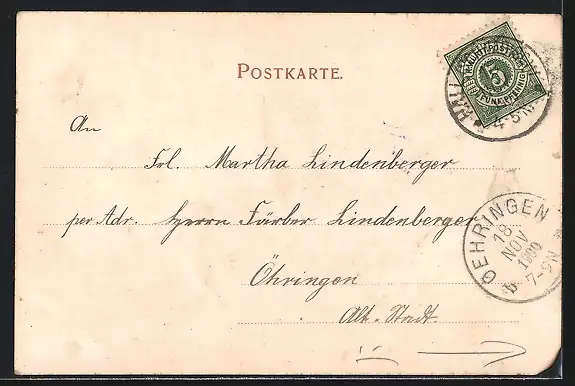 POSTKARTE.
FÜNF PFENNIG
5
4-5 N
An
Frl. Martha Lindenberger
per Adr. Herrn Färber Lindenberger
Öhringen
Alt-Stadt.
OEHRINGEN
18
NOV
1900
7-9N